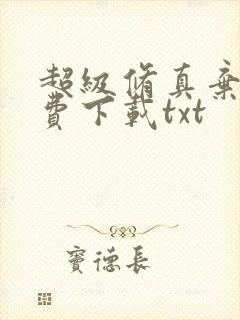 超級脩真棄
費下載txt
竇德長